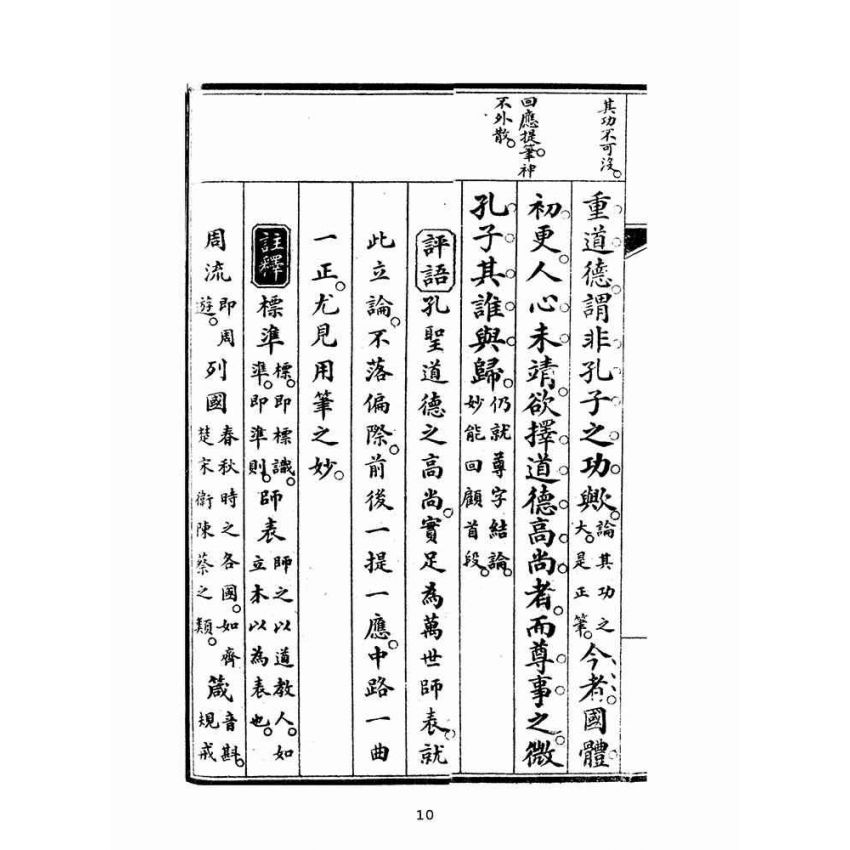 其功不可沒。
回應提筆。神
不外散。
重道德。謂非孔子之功歟。論其功之大。是正筆。今者。國體
初更。人心未靖。欲擇道德高尚者。而尊事之。微
孔子其誰與歸。仍就尊字結論。妙能回顧首段。
評語 孔聖道德之高尚。實足為萬世師表。就
此立論。不落偏際。前後一提一應。中路一曲
一正。尤見用筆之妙。
註釋 標準標。即標識。準。即準則。師表師之以道教人。如立木以為表也。
周流即周遊。列國春秋時之各國。如齊楚宋衛陳蔡之類。箴音斟。規戒
10